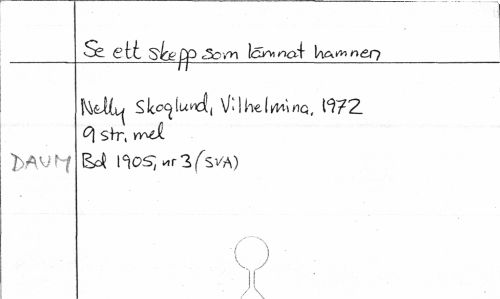 Se ett skepp som lämnat hamnen
Nelly Skoglund, Vilhelmina, 1972
9 str, mel
DAUM Bd 1905, nr 3 (SVA)